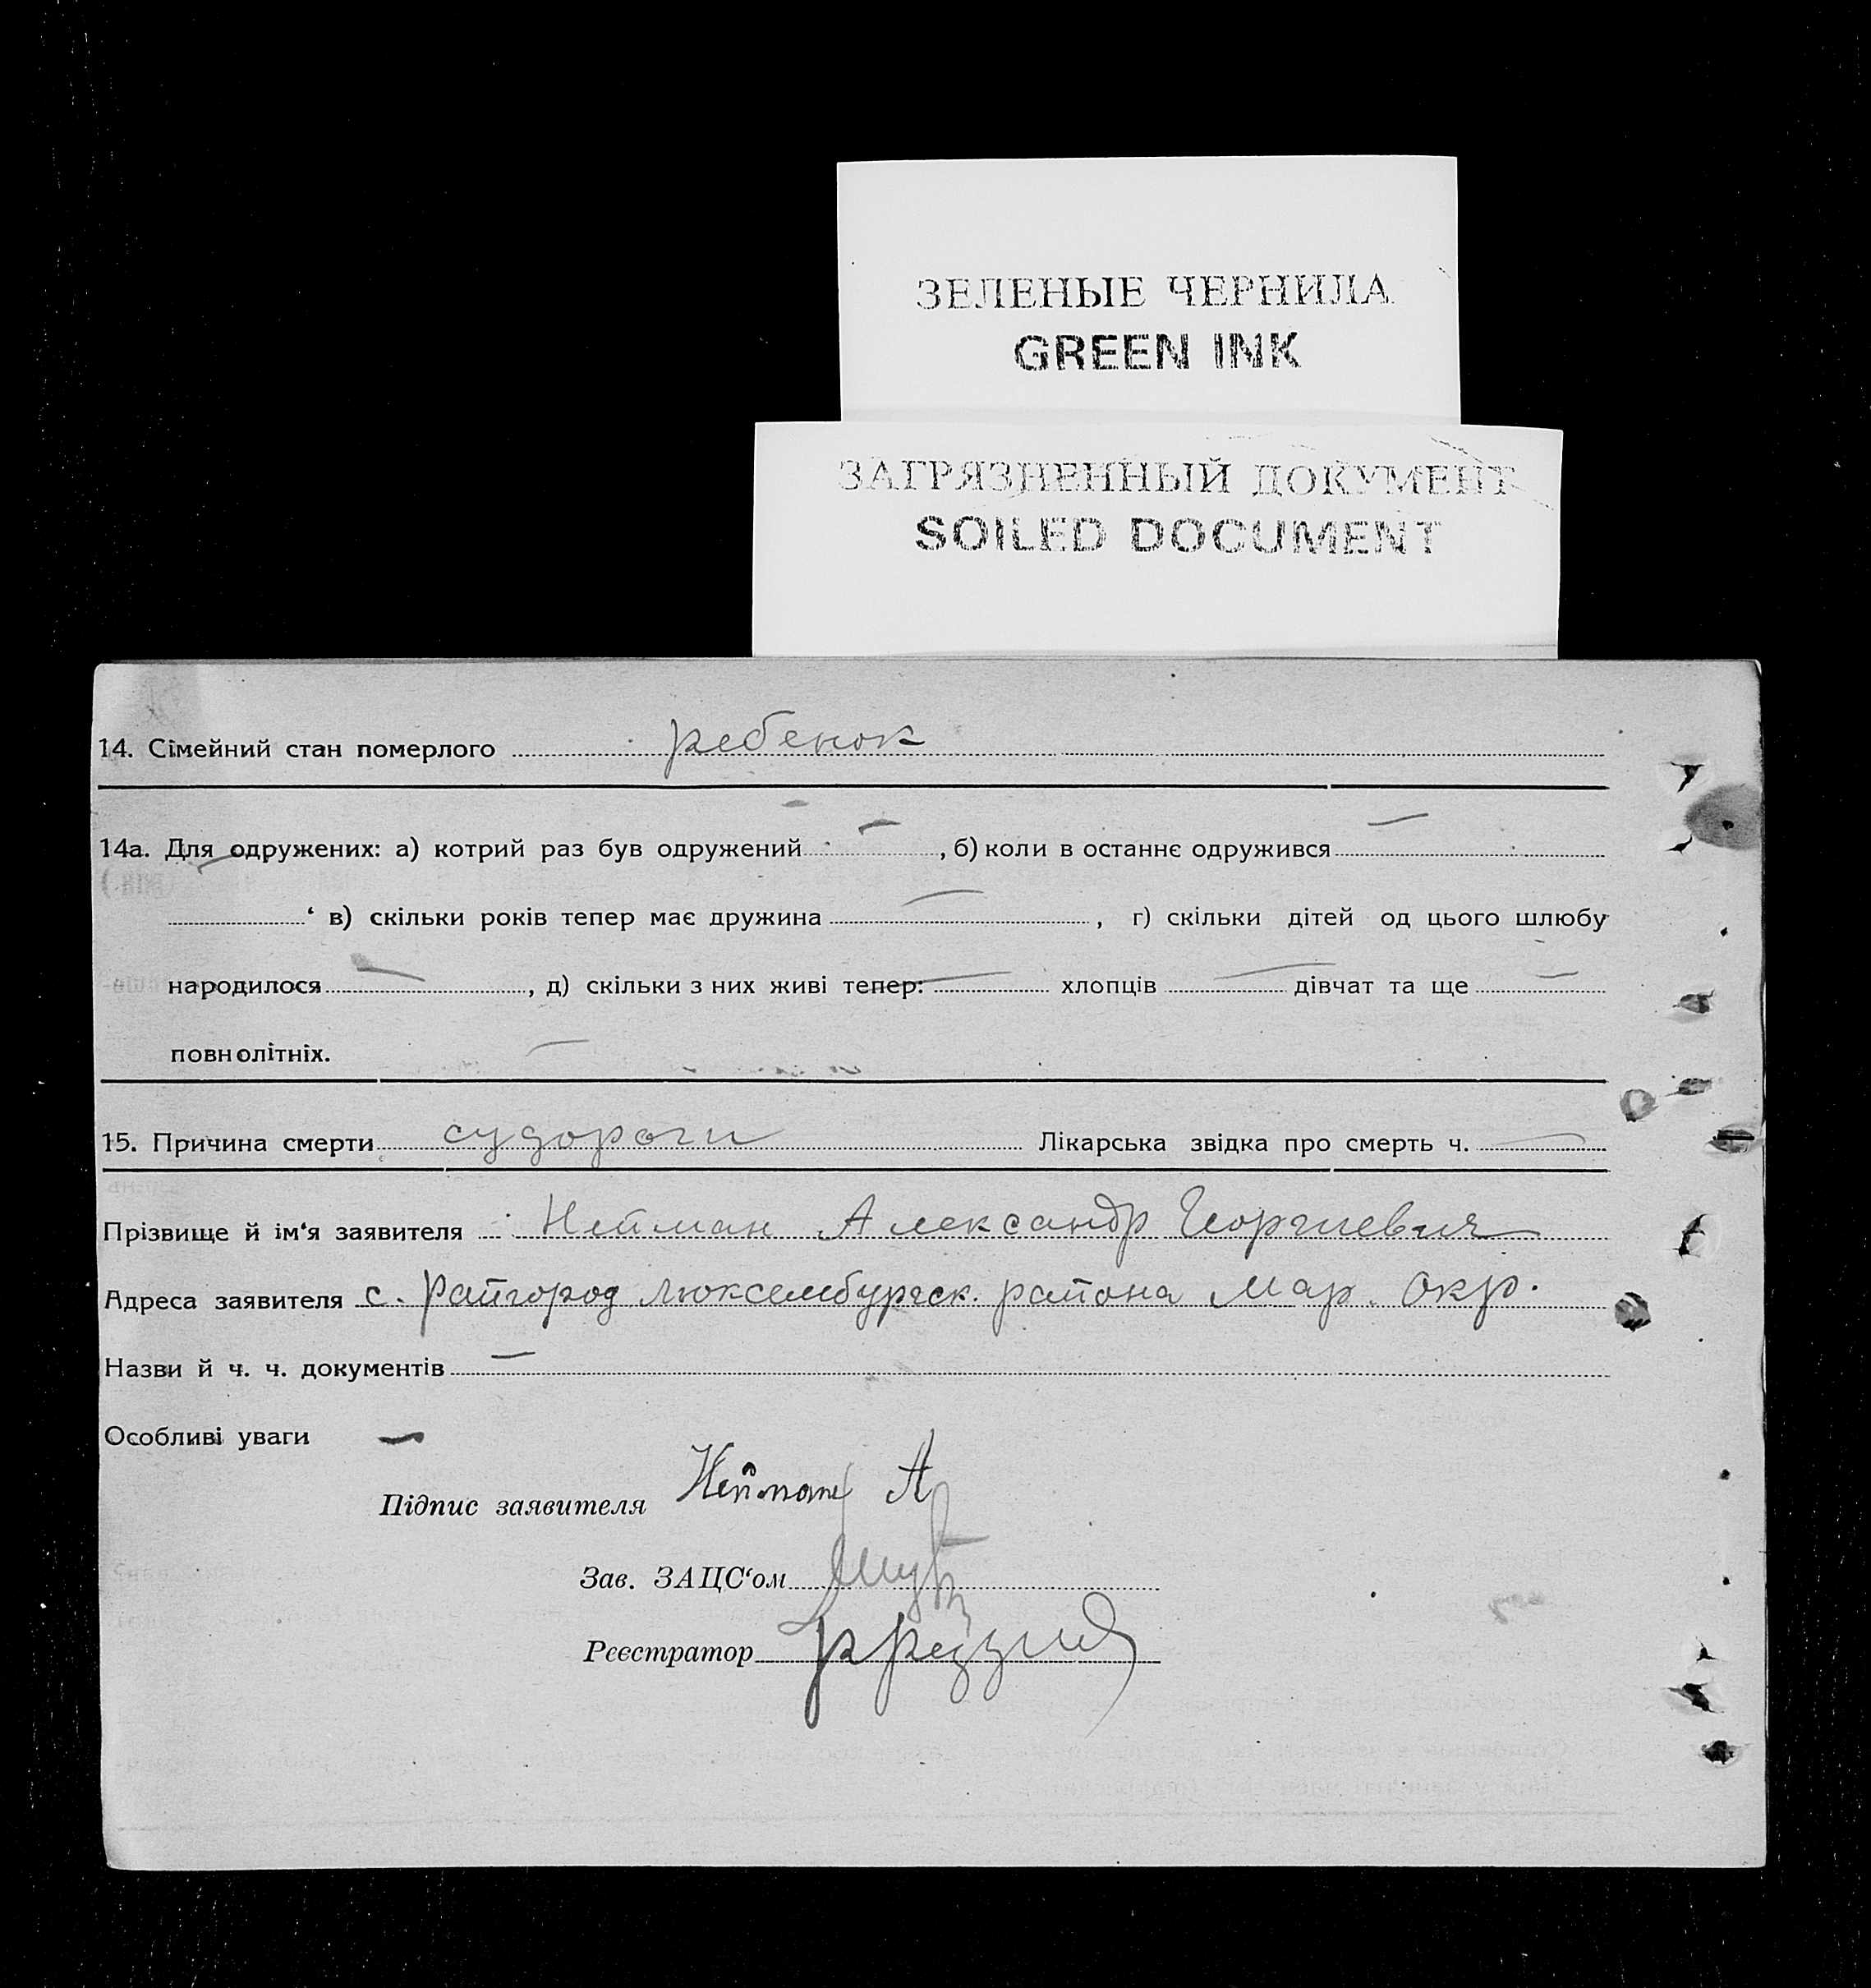 ЗЕЛЕНЫЕ ЧЕРНИЛА
GREEN INK
ЗАГРЯЗНЕННЫЙ ДОКУМЕНТ
SOILED DOCUMENT
14. Сімейний стан померлого ребенок
14а. Для одружених: а) котрий раз був одружений —, б) коли в останнє одружився —
‘ в) скільки років тепер має дружина —, г) скільки дітей од цього шлюбу
народилося —, д) скільки з них живі тепер: — хлопців — дівчат та ще —
повнолітніх. —
15. Причина смерти судороги Лікарська звідка про смерть ч. —
Прізвище й ім‘я заявителя Нейман Александр Георгиевич
Адреса заявителя с. Райгород Люксембургск. района Мар. Окр.
Назви й ч. ч. документів —
Особливі уваги —
Підпис заявителя Нейман А
Зав. ЗАЦС‘ом
Реєстратор